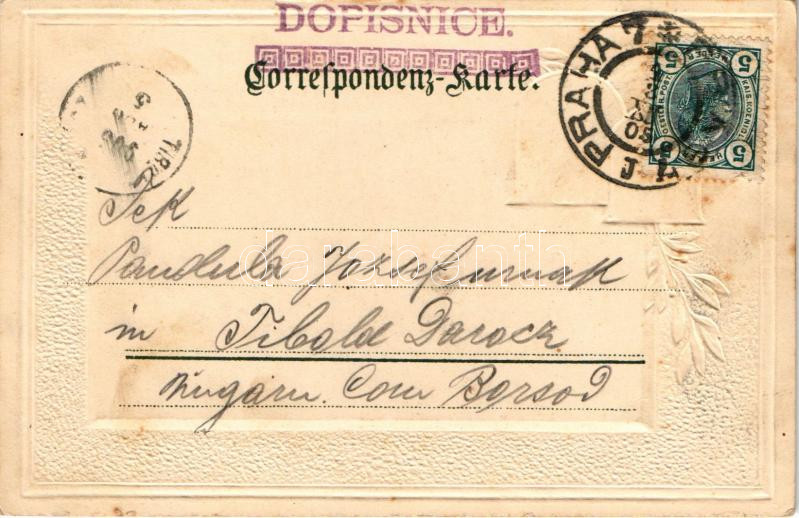 DOPISNICE.
Correspondenz-Karte.
PRAHA 7
5 5
KAIS. KOENIGL.
5 5
Tek
Pandula Jozsef urnak
in Tibold Darocz
Ungarn. Com Borsod
darabanth